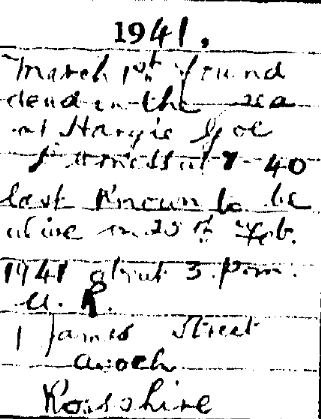 1941.
March 1st found
dead in the sea
at
at 7-40
last known to be
alive on 25th Feb.
1941 about 3. p.m.
U. R.
1 James Street
Avoch
Rosshire